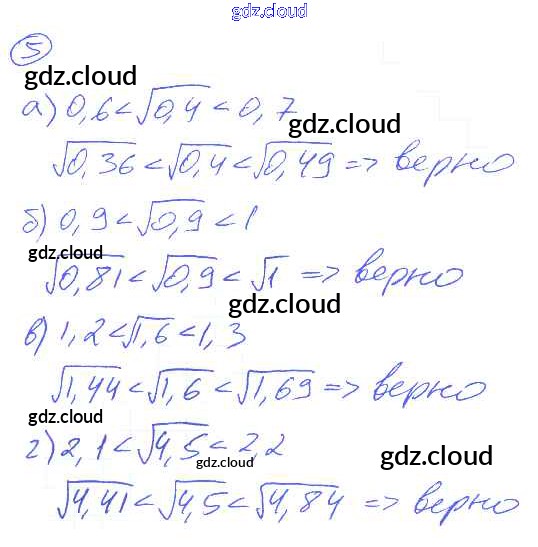 gdz.cloud
5
gdz.cloud
а) 0,6 < √0,4 < 0,7
gdz.cloud
√0,36 < √0,4 < √0,49 => верно
б) 0,9 < √0,9 < 1
gdz.cloud
√0,81 < √0,9 < √1 => верно
gdz.cloud
в) 1,2 < √1,6 < 1,3
√1,44 < √1,6 < √1,69 => верно
gdz.cloud
г) 2,1 < √4,5 < 2,2
gdz.cloud
gdz.cloud
√4,41 < √4,5 < √4,84 => верно